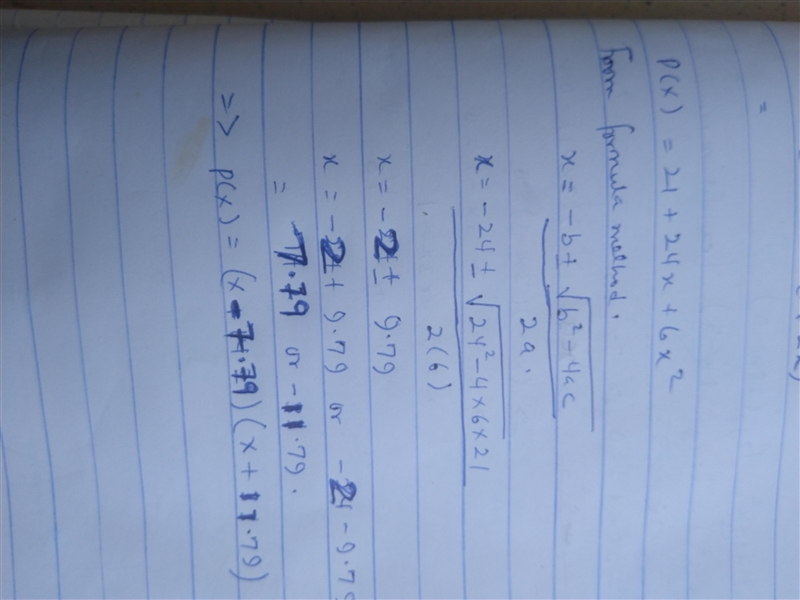 =
P(x) = 21 + 24x + 6x²
From formula method.
x = -b ± √b² - 4ac
2a.
x = -24 ± √24² - 4×6×21
2(6)
x = -2 ± 9.79
x = -2 + 9.79 or -2 - 9.79
= 7.79 or -11.79.
=> P(x) = (x - 7.79)(x + 11.79)